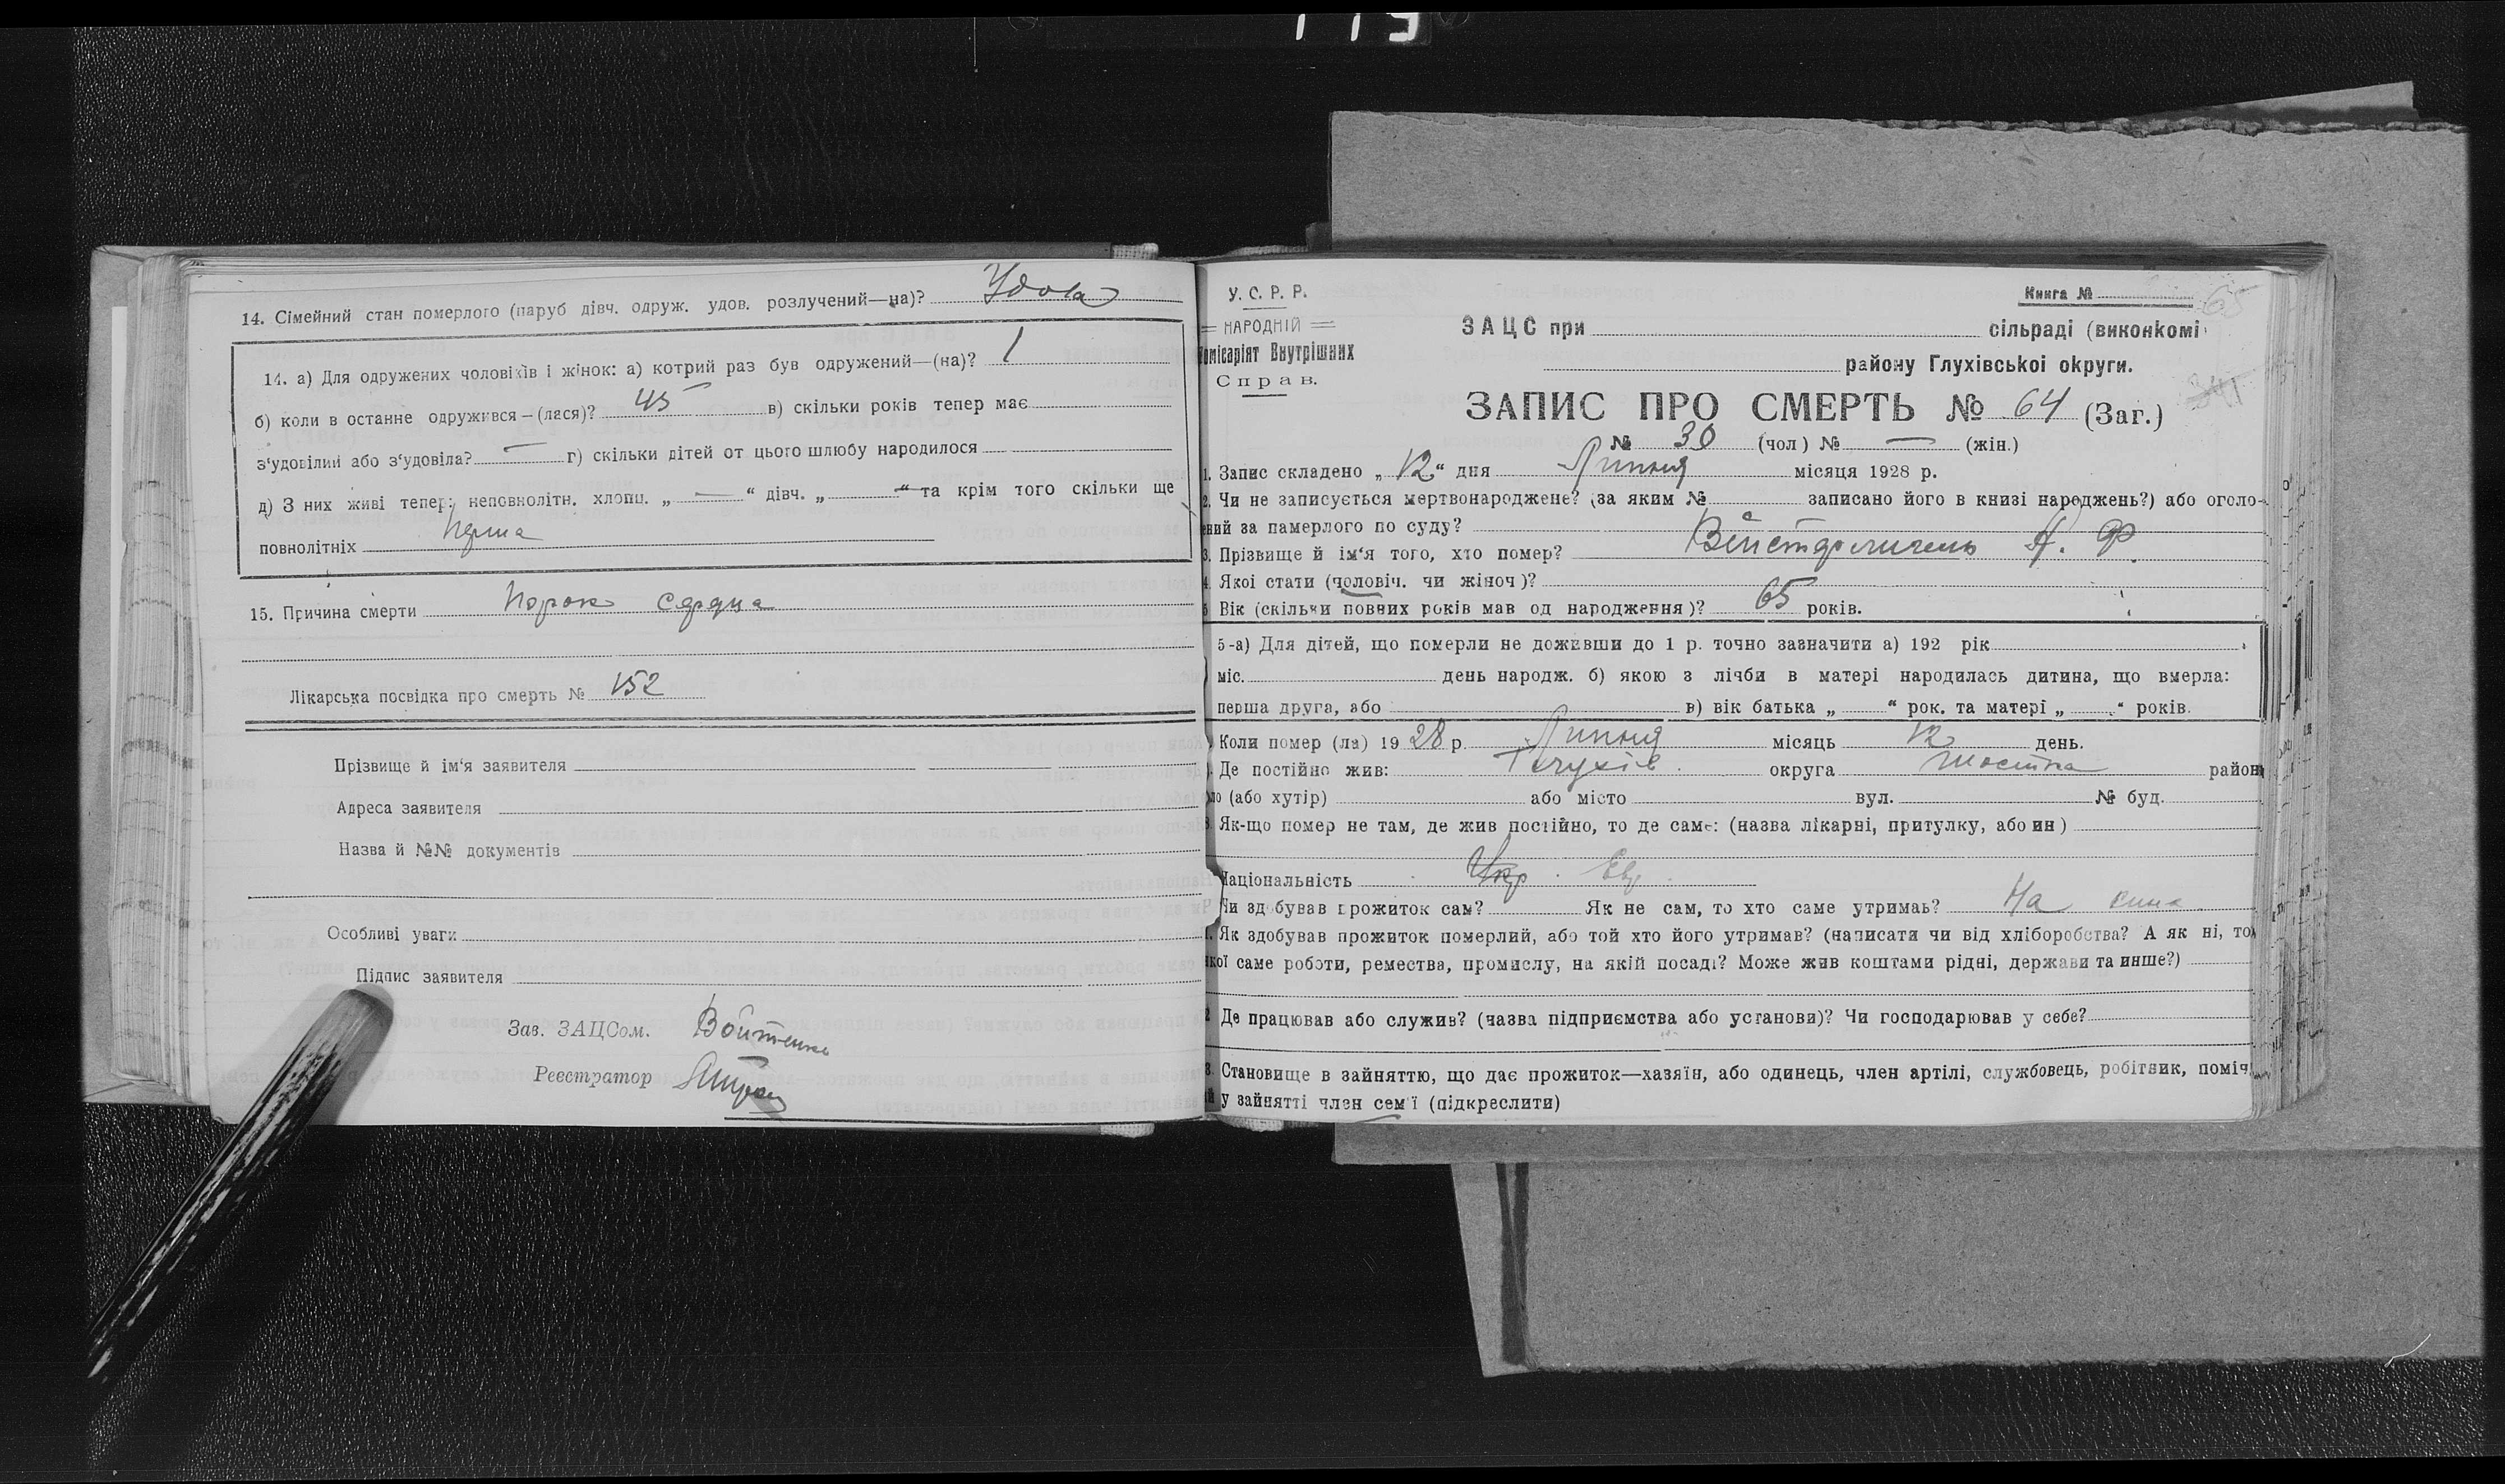 14. Сімейний стан померлого (паруб дівч. одруж. удов. розлучений—на)? Удова
14. а) Для одружених чоловіків і жінок: а) котрий раз був одружений—(на)? 1
б) коли в останнє одружився—(лася)? 45 в) скільки років тепер має
з'удовілий або з'удовіла? — г) скільки дітей от цього шлюбу народилося
д) З них живі тепер: неповнолітн. хлопц. „ — “ дівч. „ “ та крім того скільки ще
повнолітніх
15. Причина смерти Порок сердца
Лікарська посвідка про смерть № 152
Прізвище й ім'я заявителя
Адреса заявителя
Назва й №№ документів
Особливі уваги
Підпис заявителя
Зав. ЗАЦСом. Войтенко
Реєстратор
У. С. Р. Р.
НАРОДНІЙ
Комісаріят Внутрішних
Справ.
Книга №
65
ЗАЦС при сільраді (виконкомі
району Глухівської округи.
341
ЗАПИС ПРО СМЕРТЬ № 64 (Заг.)
№ 30 (чол) № — (жін.)
1. Запис складено „12“ дня Липня місяця 1928 р.
2. Чи не записується мертвонароджене? (за яким № записано його в книзі народжень?) або оголо-
ений за памерлого по суду?
3. Прізвище й ім'я того, хто помер? А. Ф.
4. Якої стати (чоловіч. чи жіноч)?
5 Вік (скільки повних років мав од народження)? 65 років.
5-а) Для дітей, що померли не доживши до 1 р. точно зазначити а) 192 рік
міс. день народж. б) якою з лічби в матері народилась дитина, що вмерла:
перша друга, або в) вік батька „ “ рок. та матері „ “ років.
Коли помер (ла) 1928 р. Липня місяць 12 день.
Де постійно жив: Глухів округа Шостка район
ло (або хутір) або місто вул. № буд.
8. Як-що помер не там, де жив постійно, то де саме: (назва лікарні, притулку, або ин)
Національність Укр. Евр.
Чи здобував прожиток сам? Як не сам, то хто саме утримав? На сина
1. Як здобував прожиток померлий, або той хто його утримав? (написати чи від хліборобства? А як ні, то
якої саме роботи, ремества, промислу, на якій посаді? Може жив коштами рідні, держави та инше?)
2 Де працював або служив? (назва підприємства або установи)? Чи господарював у себе?
3. Становище в зайняттю, що дає прожиток—хазяїн, або одинець, член артілі, службовець, робітник, поміч
й у зайнятті член сем'ї (підкреслити)